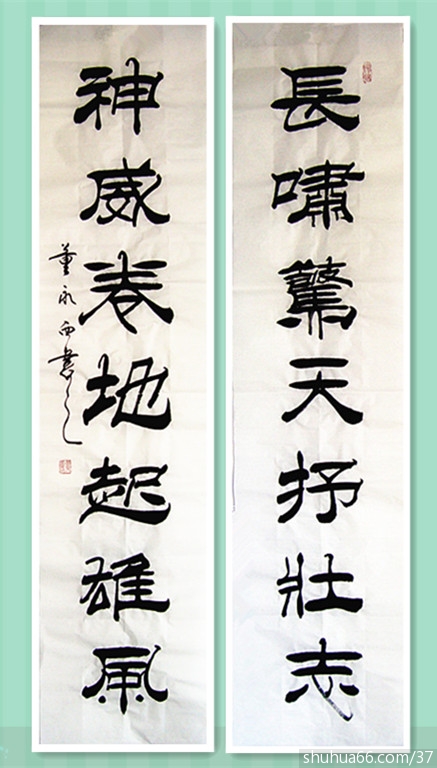 長嘯驚天抒壯志
神威卷地起雄風
董永西書
shuhua66.com/37